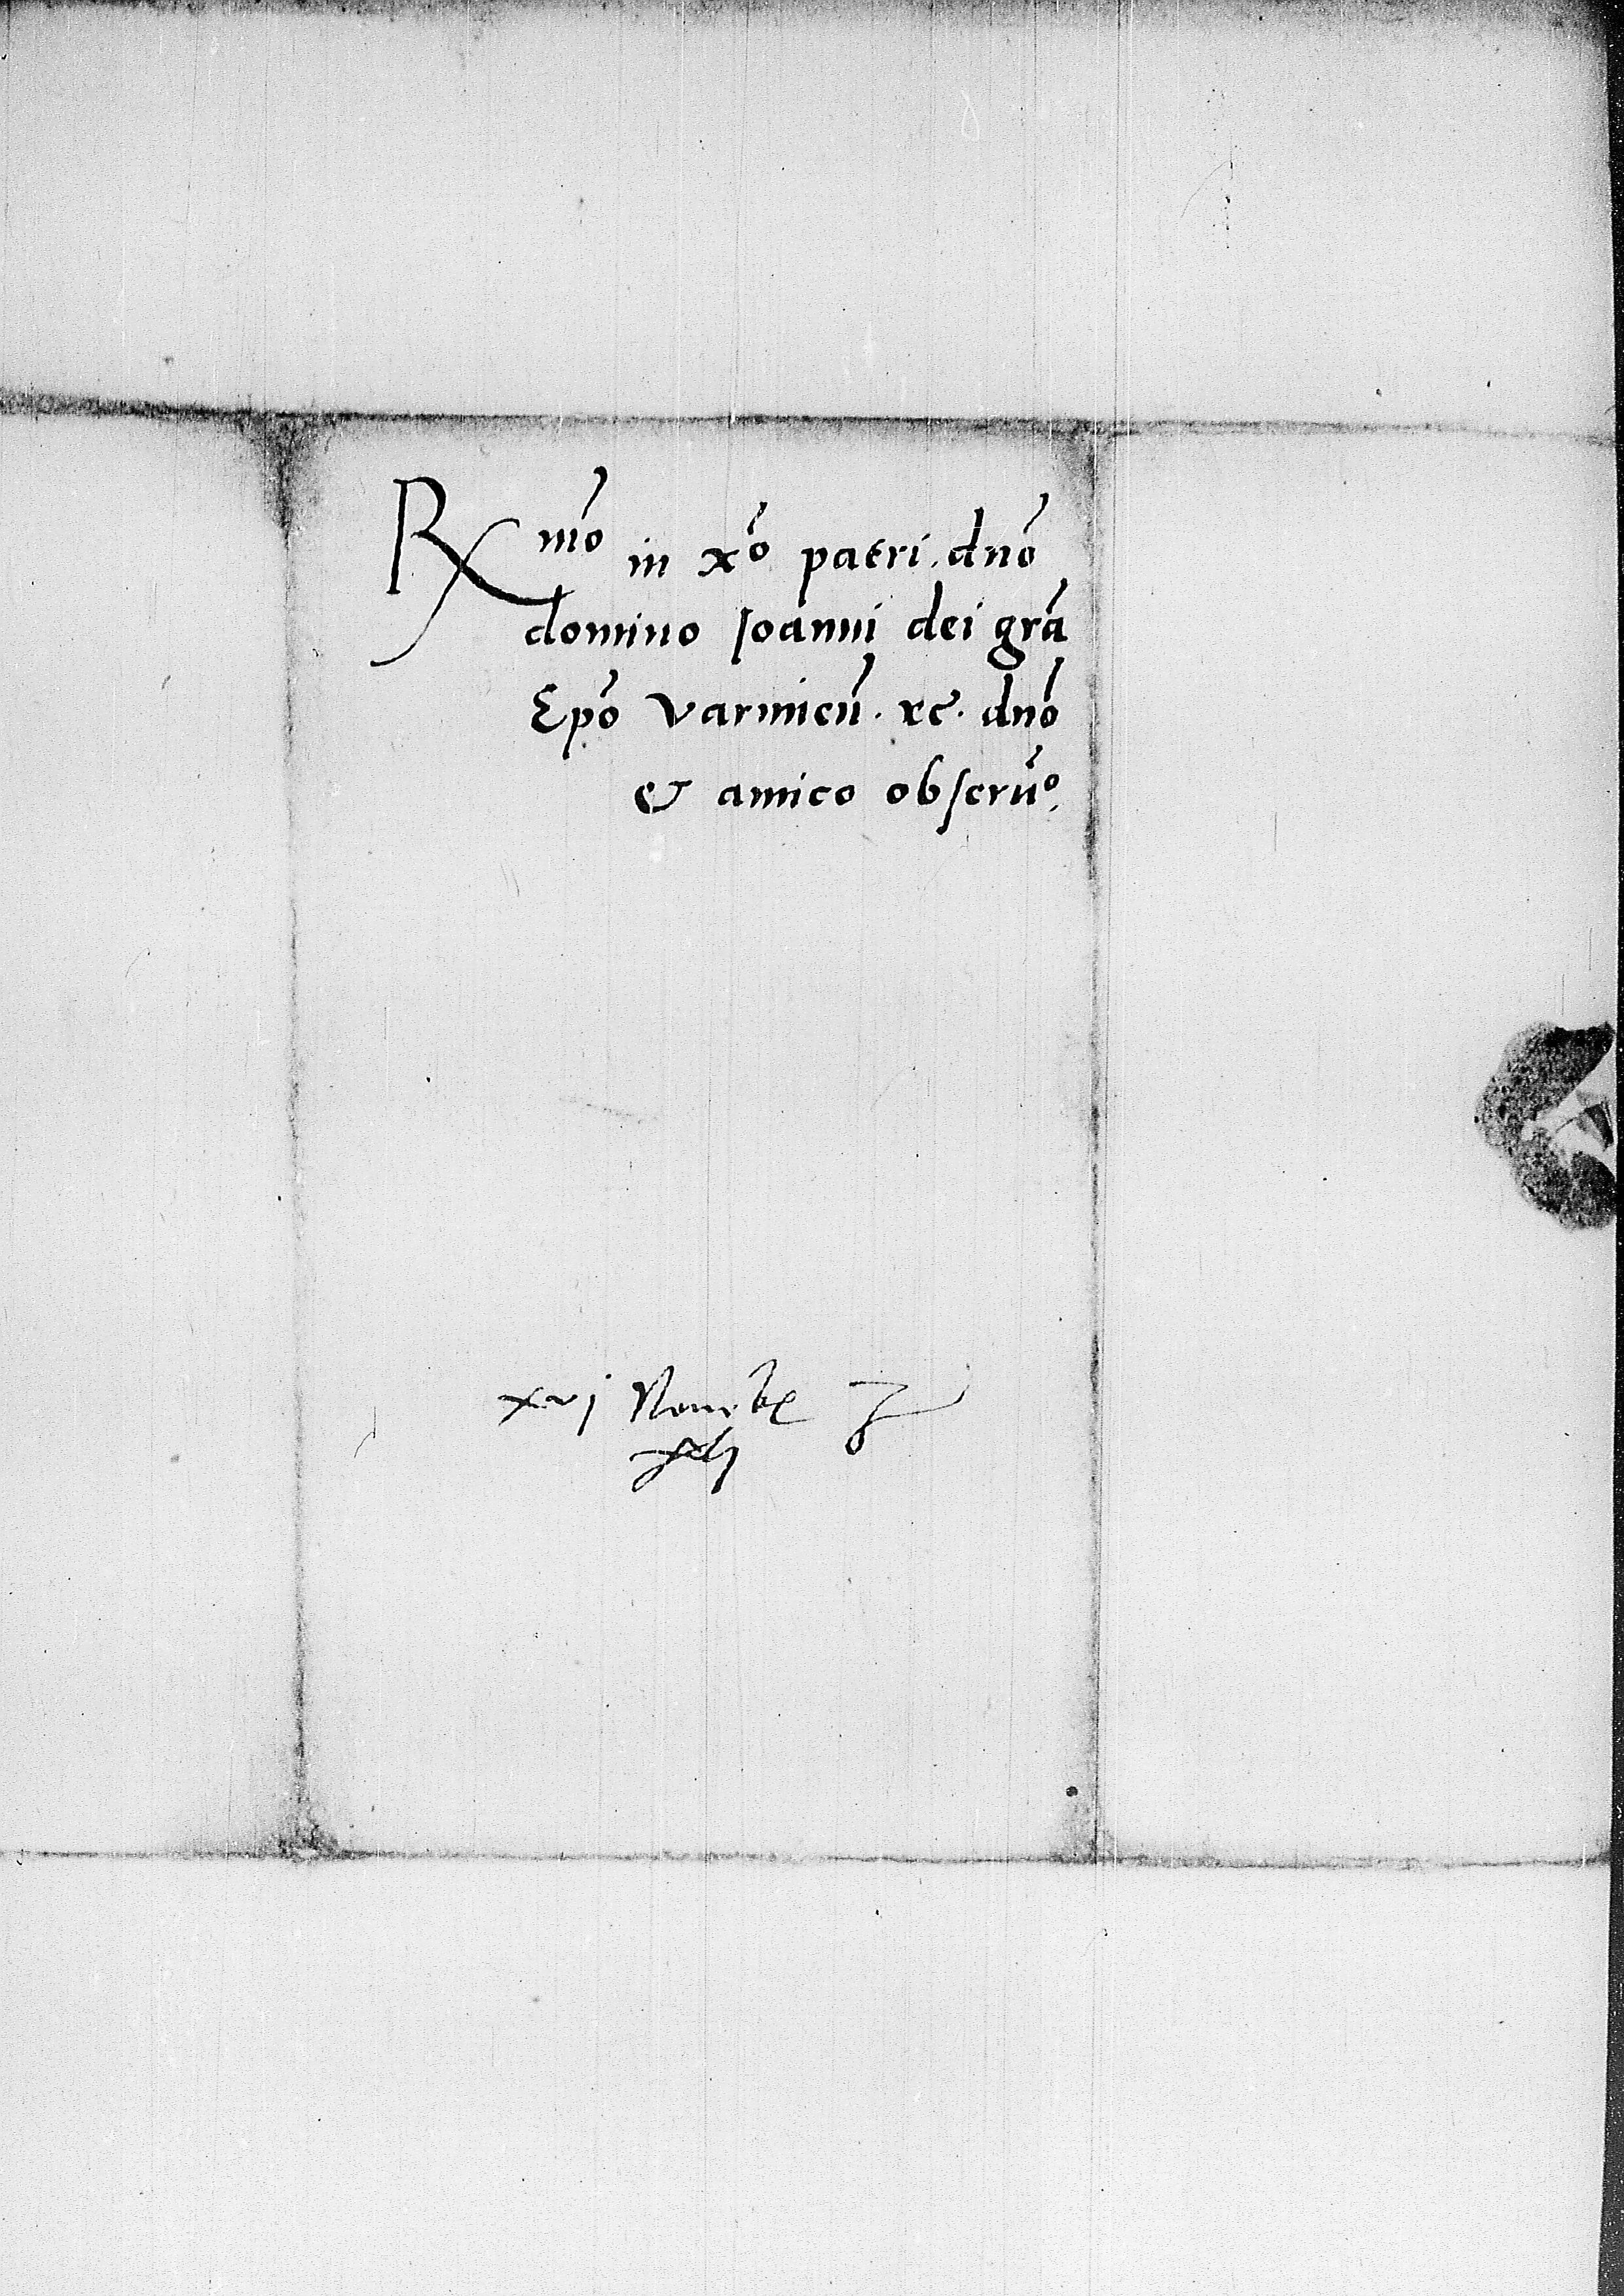 Rmo in xo patri. dno
domino Ioanni dei gra
Epo Varmien. &c. dno
& amico obseruo.
xvj Nouebr